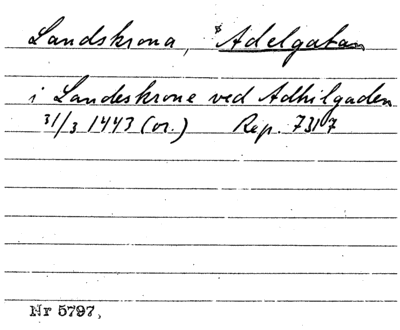 Landskrona, * Adelgatan
i Landeskrone ved Adhilgaden
31/3 1443 (or.) Rep. 7317
Nr 5797,